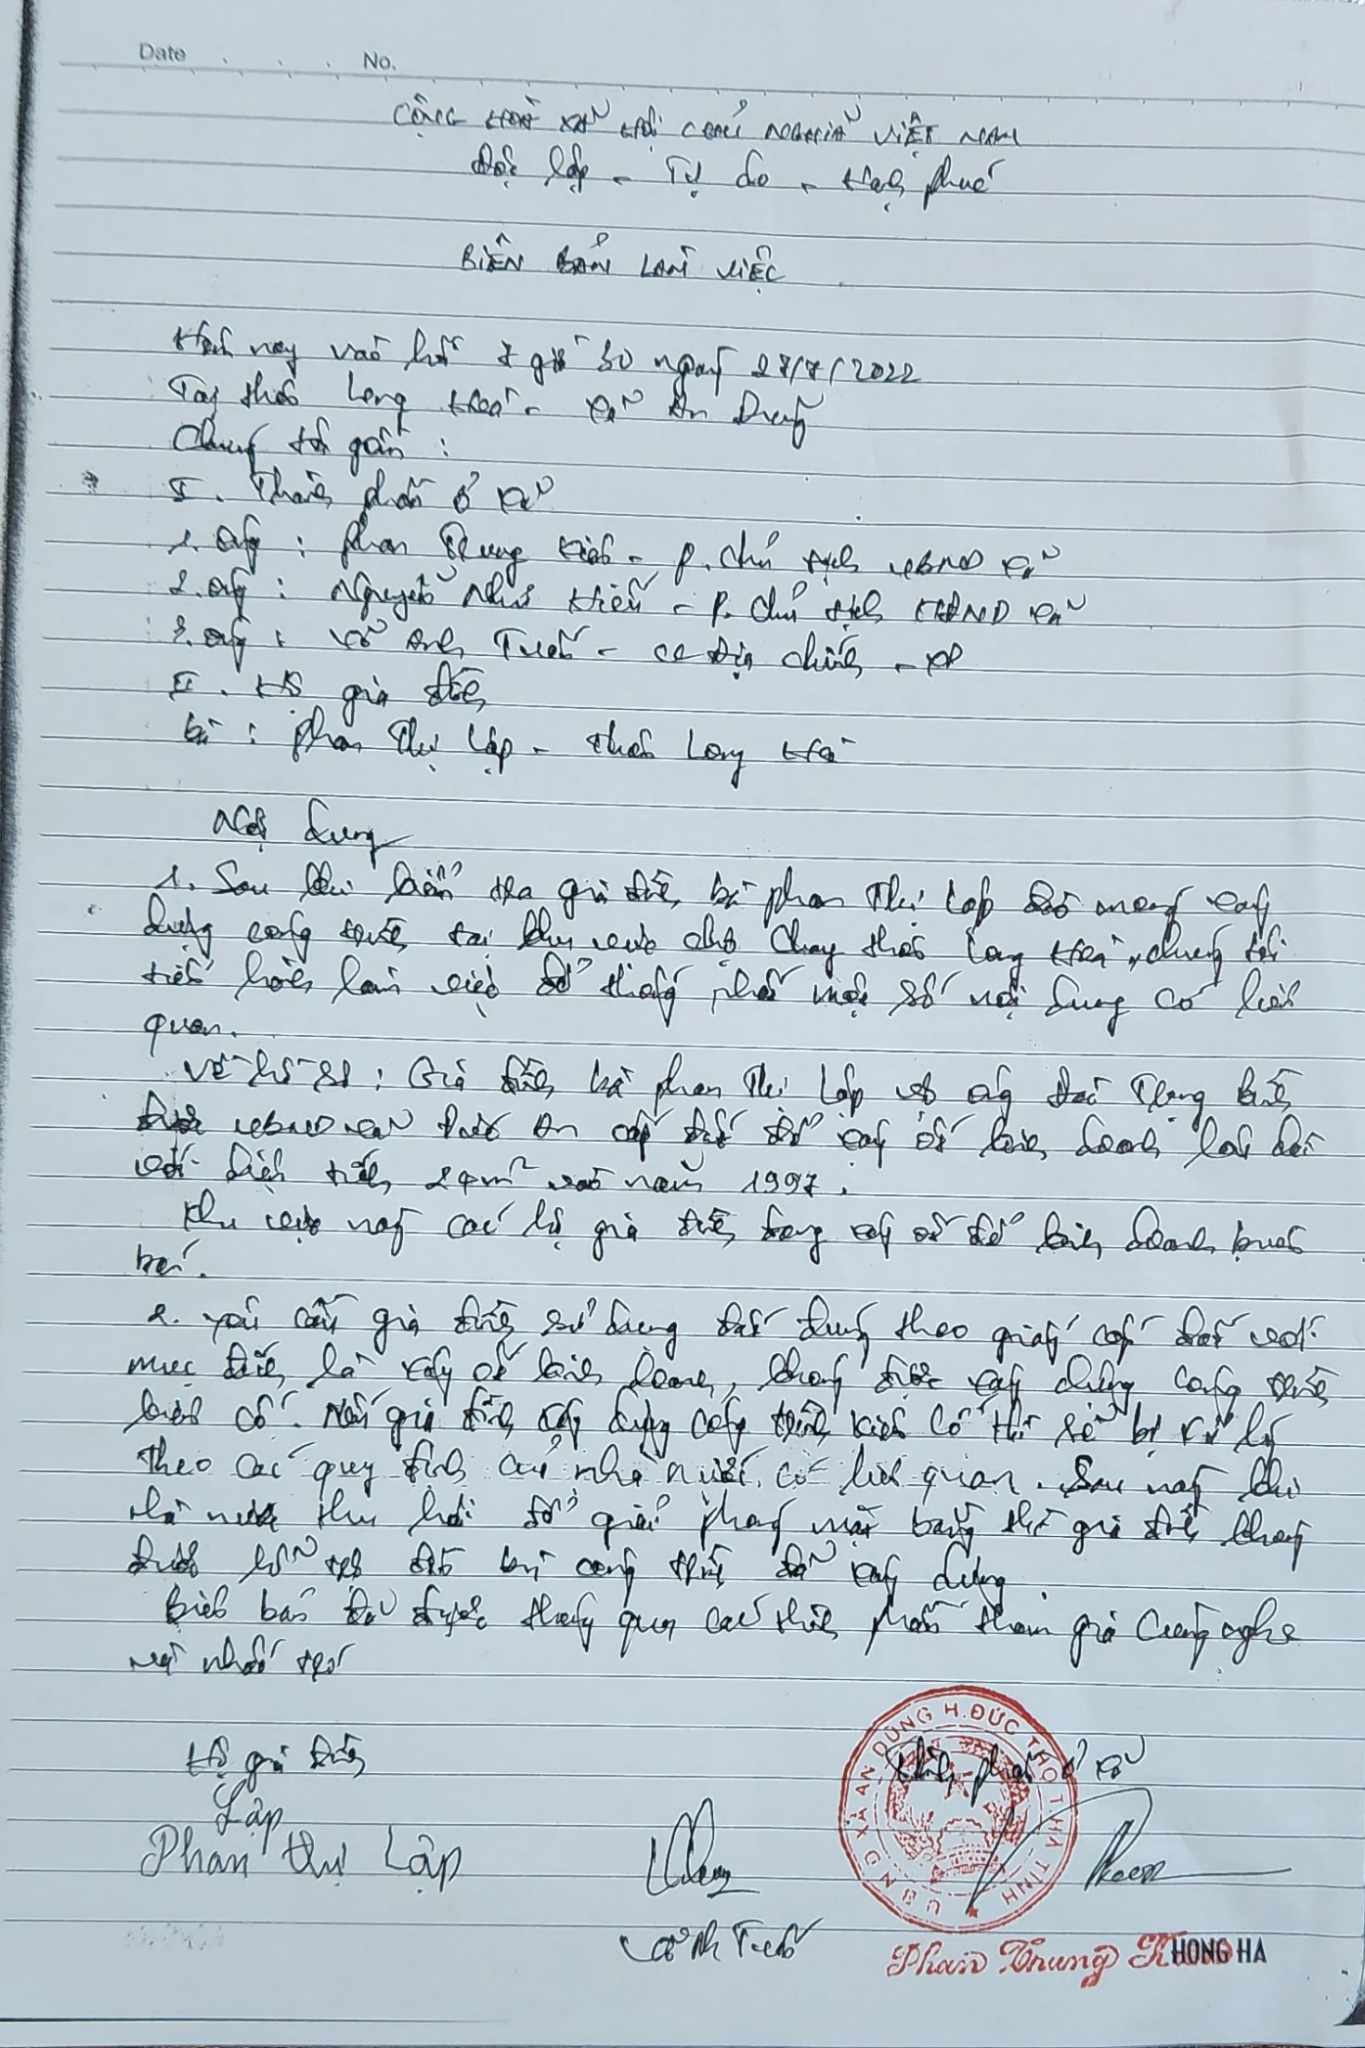 Date No.
CỘNG HOÀ XÃ HỘI CHỦ NGHĨA VIỆT NAM
Độc lập - Tự do - Hạnh phúc
BIÊN BẢN LÀM VIỆC
Hôm nay vào hồi 7 giờ 30 ngày 27/7/2022
Tại thôn Long Hoà - xã An Dũng
Chúng tôi gồm :
I. Thành phần ở xã
1. Ông : Phan Trung - P. Chủ tịch UBND xã
2. Ông : Nguyễn Như - P. Chủ tịch HĐND xã
3. Ông : Võ Anh Tuấn - CC Địa chính - XD
II. Hộ gia đình
bà : Phan Thị Lập - thôn Long Hoà
Nội dung
1. Sau khi kiểm tra gia đình bà Phan Thị Lập đào móng xây
dựng công trình tại khu vực chợ Chay thôn Long Hoà, chúng tôi
tiến hành làm việc để thống nhất một số nội dung có liên
quan.
Về hồ sơ : Gia đình bà Phan Thị Lập và ông
được UBND xã Đức An cấp đất để xây ốt kinh doanh
với diện tích 24m² vào năm 1997.
Khu vực này các hộ gia đình đang xây ốt để kinh doanh buôn
bán.
2. Yêu cầu gia đình sử dụng đất đúng theo giấy cấp đất với
mục đích là xây ốt kinh doanh, không được xây dựng công trình
kiên cố. Nếu gia đình xây dựng công trình kiên cố thì sẽ bị xử lý
theo các quy định của nhà nước có liên quan. Sau này khi
nhà nước thu hồi để giải phóng mặt bằng thì gia đình không
được hỗ trợ đền bù công trình đã xây dựng.
Biên bản đã được thông qua các thành phần tham gia cùng nghe
và nhất trí
Hộ gia đình
Thành phần ở xã
Lập
Phan Thị Lập
Võ Anh Tuấn
U B N D XÃ AN DŨNG H. ĐỨC THỌ T HÀ TĨNH
Phan Trung
HONG HA